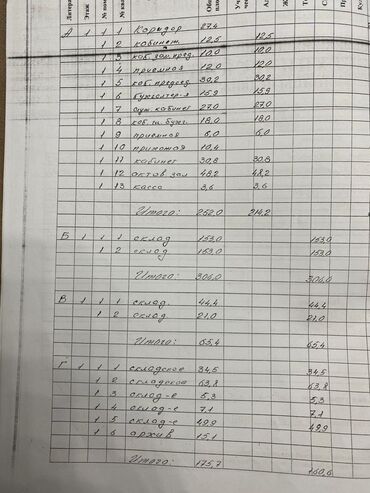 Литера Этаж № № Уч А Ж Т С П Ку
А 1 1 1 Коридор 27,4
1 2 кабинет 12,5 12,5
1 3 каб. зам. пред. 10,0 10,0
1 4 приемная 12,0 12,0
1 5 каб. председ. 30,2 30,2
1 6 бухгалтер-я 15,9 15,9
1 7 кабинет 27,0 27,0
1 8 каб. гл. бухг. 18,0 18,0
1 9 приемная 6,0 6,0
1 10 прихожая 10,4
1 11 кабинет 30,8 30,8
1 12 актов зал 48,2 48,2
1 13 касса 3,6 3,6
Итого: 252,0 214,2
Б 1 1 1 склад 153,0 153,0
1 2 склад 153,0 153,0
Итого: 306,0 306,0
В 1 1 1 склад. 44,4 44,4
1 2 склад 21,0 21,0
Итого: 65,4 65,4
Г 1 1 1 складское 34,5 34,5
1 2 складское 63,8 63,8
1 3 склад-е 5,3 5,3
1 4 склад-е 7,1 7,1
1 5 склад-е 49,9 49,9
1 6 архив 15,1
Итого: 175,7 160,6